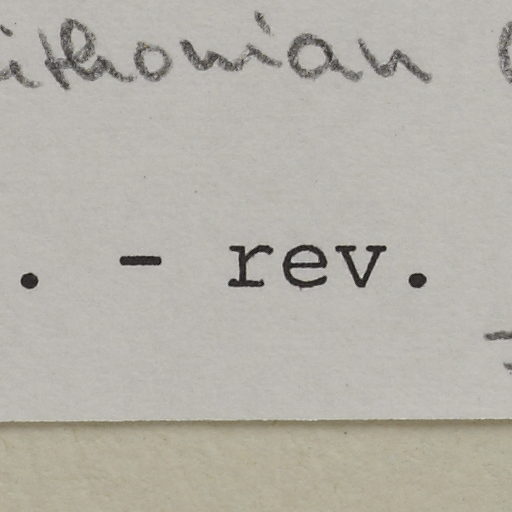 ithonian
. - rev.